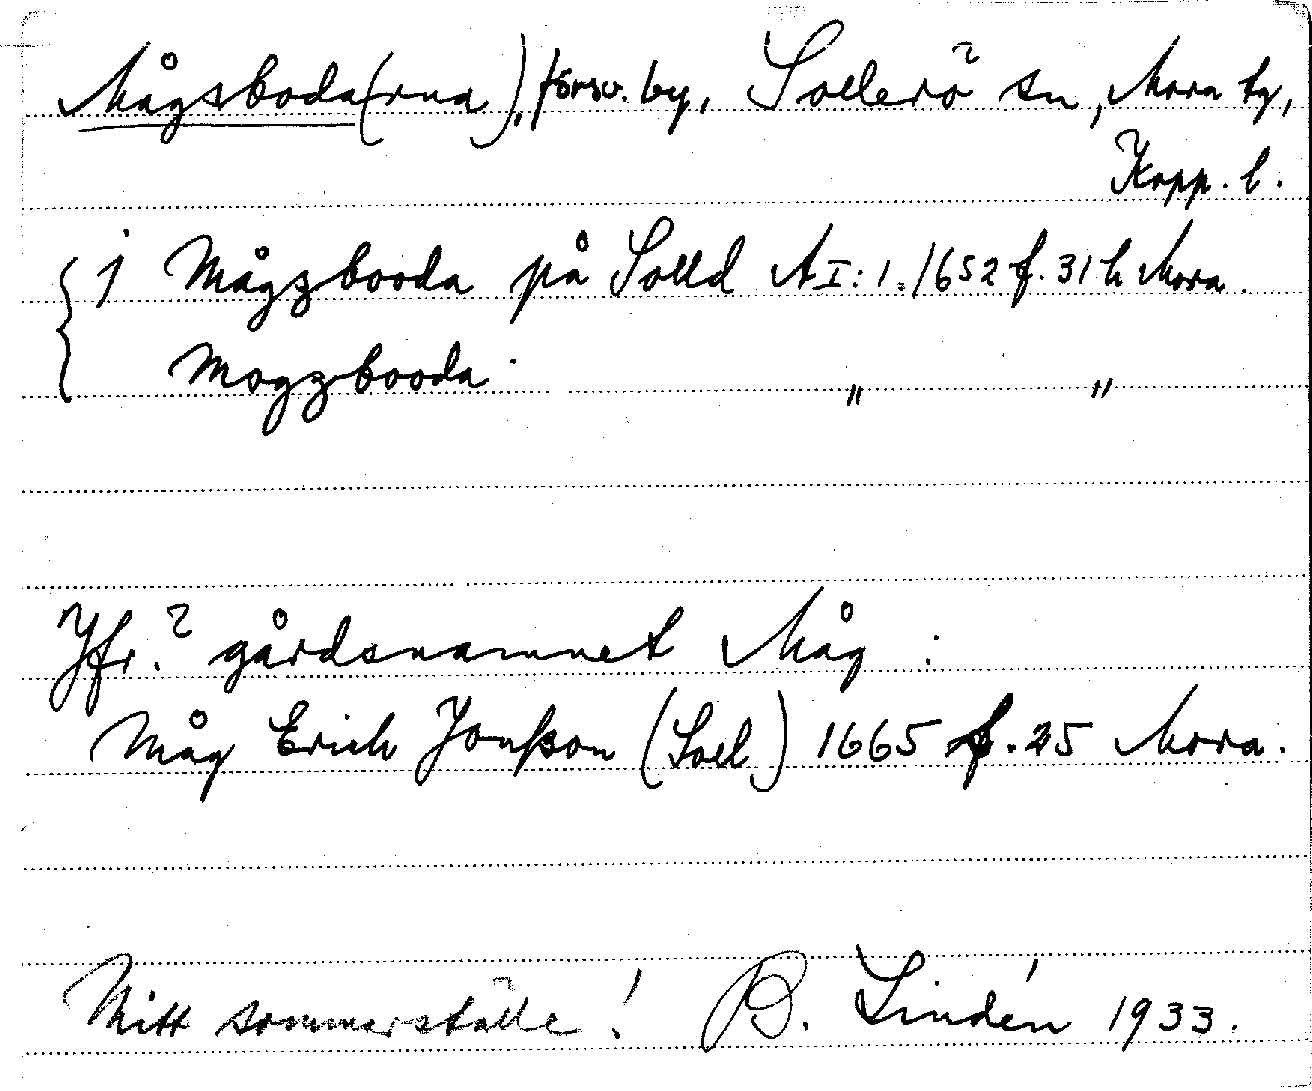 Mågsboda(rna), försv. by, Sollerö sn, Mora tg,
Kopp. l.
j Mågzbooda på Solld AI:1. 1652 f. 31 h Mora.
Mogzbooda " "
Jfr.? gårdsnamnet Måg :
Måg Erich Jonßon (Soel) 1665 f. 25 Mora.
Mitt sommarställe! B. Lindén 1933.